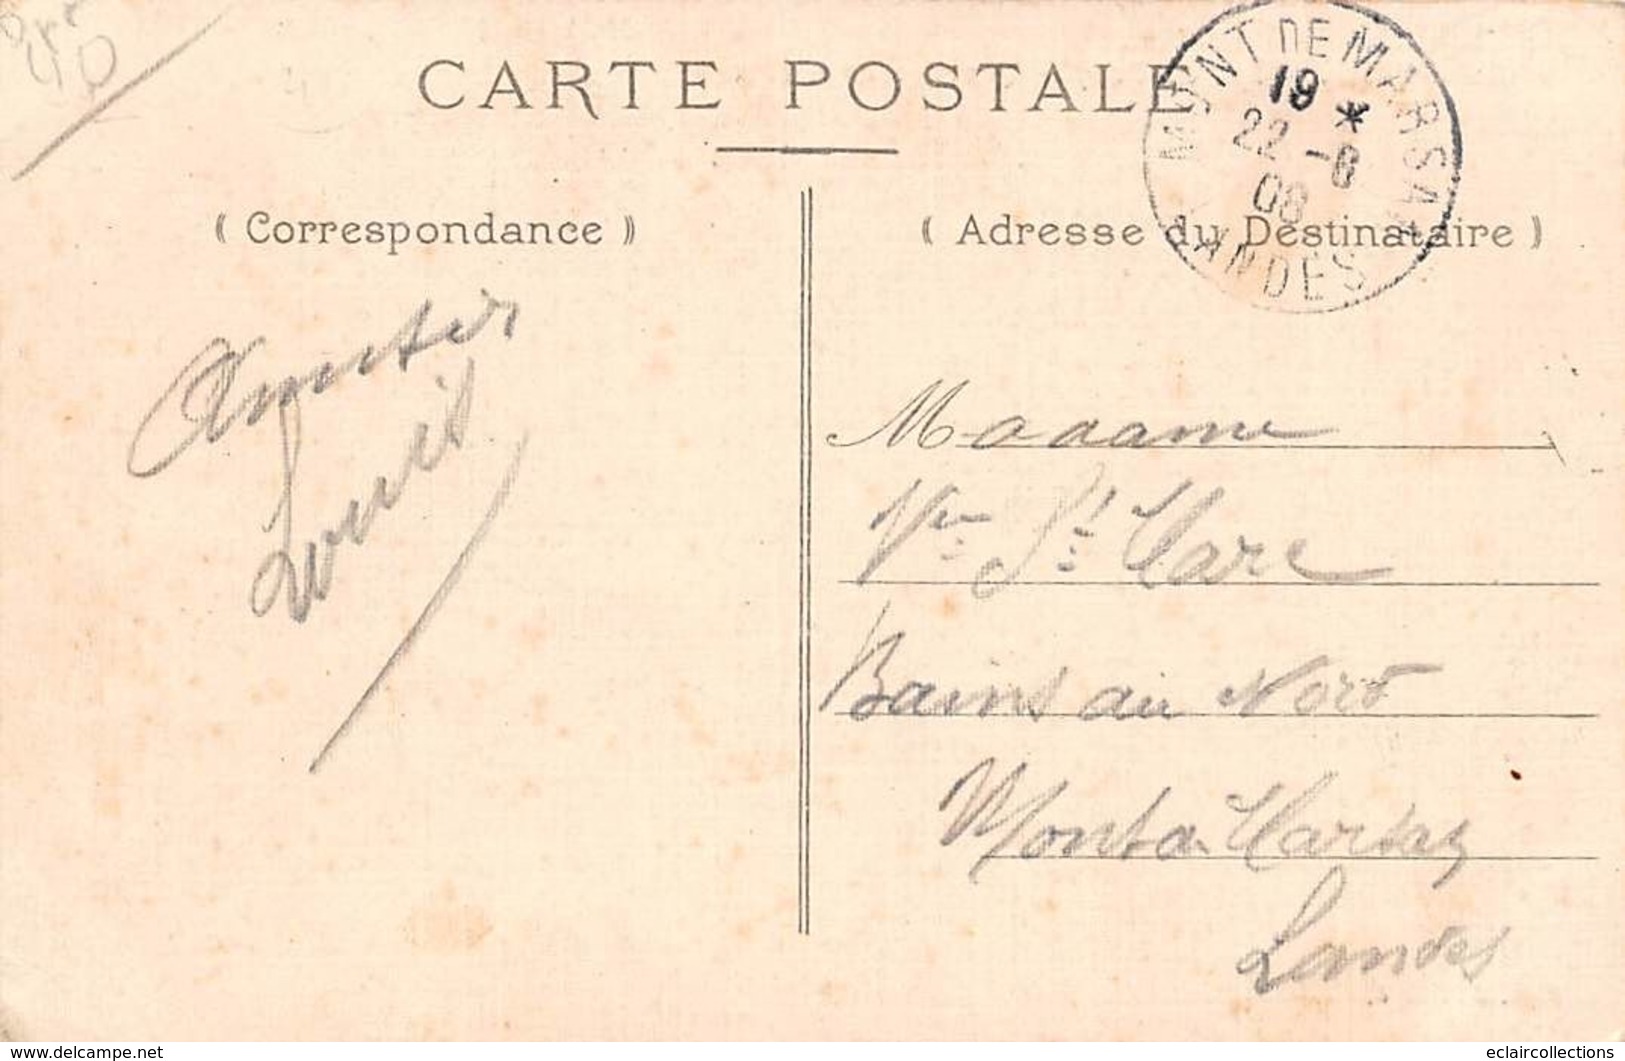 CARTE POSTALE
MONT DE MARSAN
19 *
22 - 8
08
LANDES
( Correspondance )
( Adresse du Destinataire )
Louis
Madame
Vve St Marc
Bains du Nord
Mont de Marsan
Landes
eclaircollections
www.delcampe.net